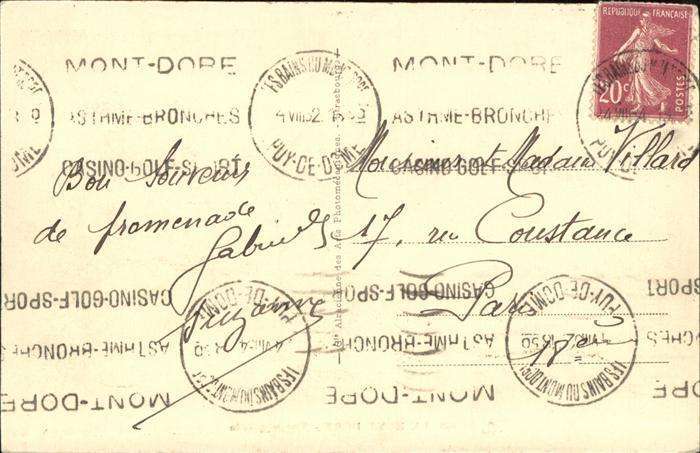 RÉPUBLIQUE FRANÇAISE
20c
POSTES
MONT-DORE
ASTHME-BRONCHES
CASINO-GOLF-SPORT
LES BAINS DU MONT-DORE
4 VIII 32
PUY-DE-DOME
MONT-DORE
ASTHME-BRONCHES
CASINO-GOLF-SPORT
Bon Souvenir
de promenade
Gabriel
Suzanne
Monsieur et Madame Villard
17, rue Constance
Paris
18e
CASINO-GOLF-SPORT
ASTHME-BRONCHES
MONT-DORE
PUY-DE-DOME
LES BAINS DU MONT-DORE
CASINO-GOLF-SPORT
ASTHME-BRONCHES
MONT-DORE
PUY-DE-DOME
LES BAINS DU MONT-DORE